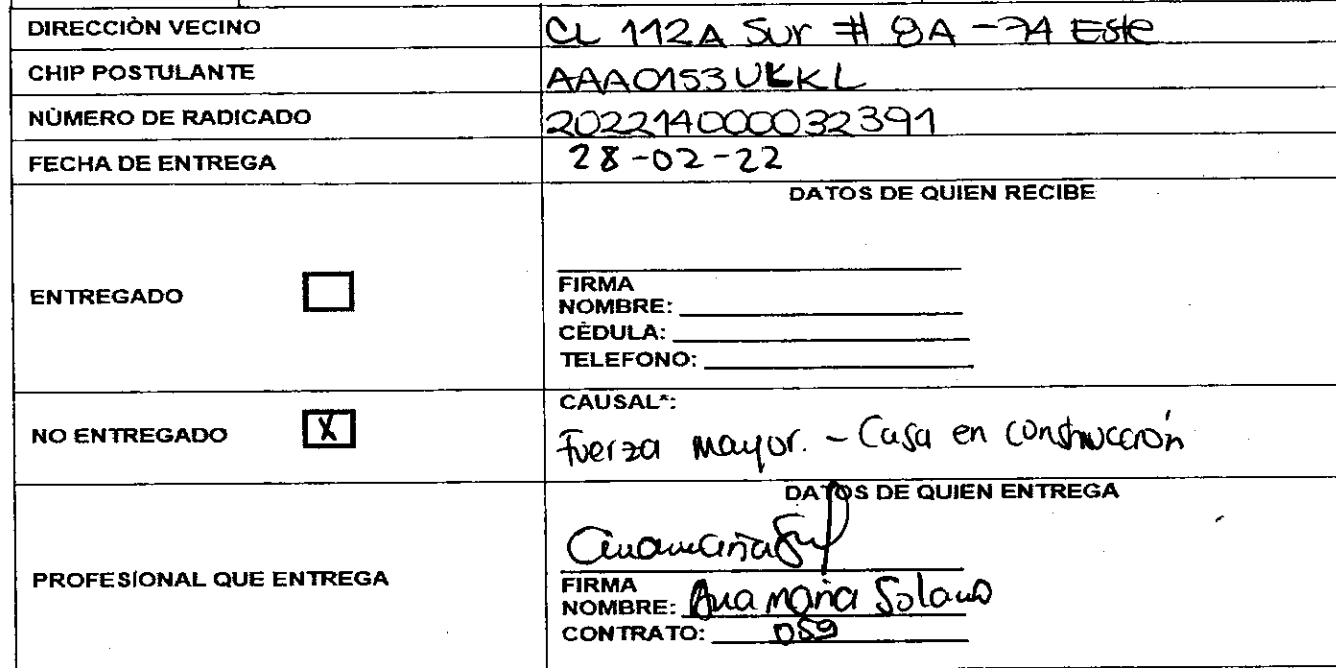 DIRECCIÒN VECINO CL 112A Sur # 8A - 74 Este
CHIP POSTULANTE AAA0153UKKL
NÙMERO DE RADICADO 202214000032391
FECHA DE ENTREGA 28-02-22
DATOS DE QUIEN RECIBE
ENTREGADO
FIRMA
NOMBRE:
CÈDULA:
TELEFONO:
NO ENTREGADO X
CAUSAL*:
Fuerza mayor. - Casa en construcción
DATOS DE QUIEN ENTREGA
PROFESIONAL QUE ENTREGA
FIRMA
NOMBRE: Ana maria Solano
CONTRATO: 059